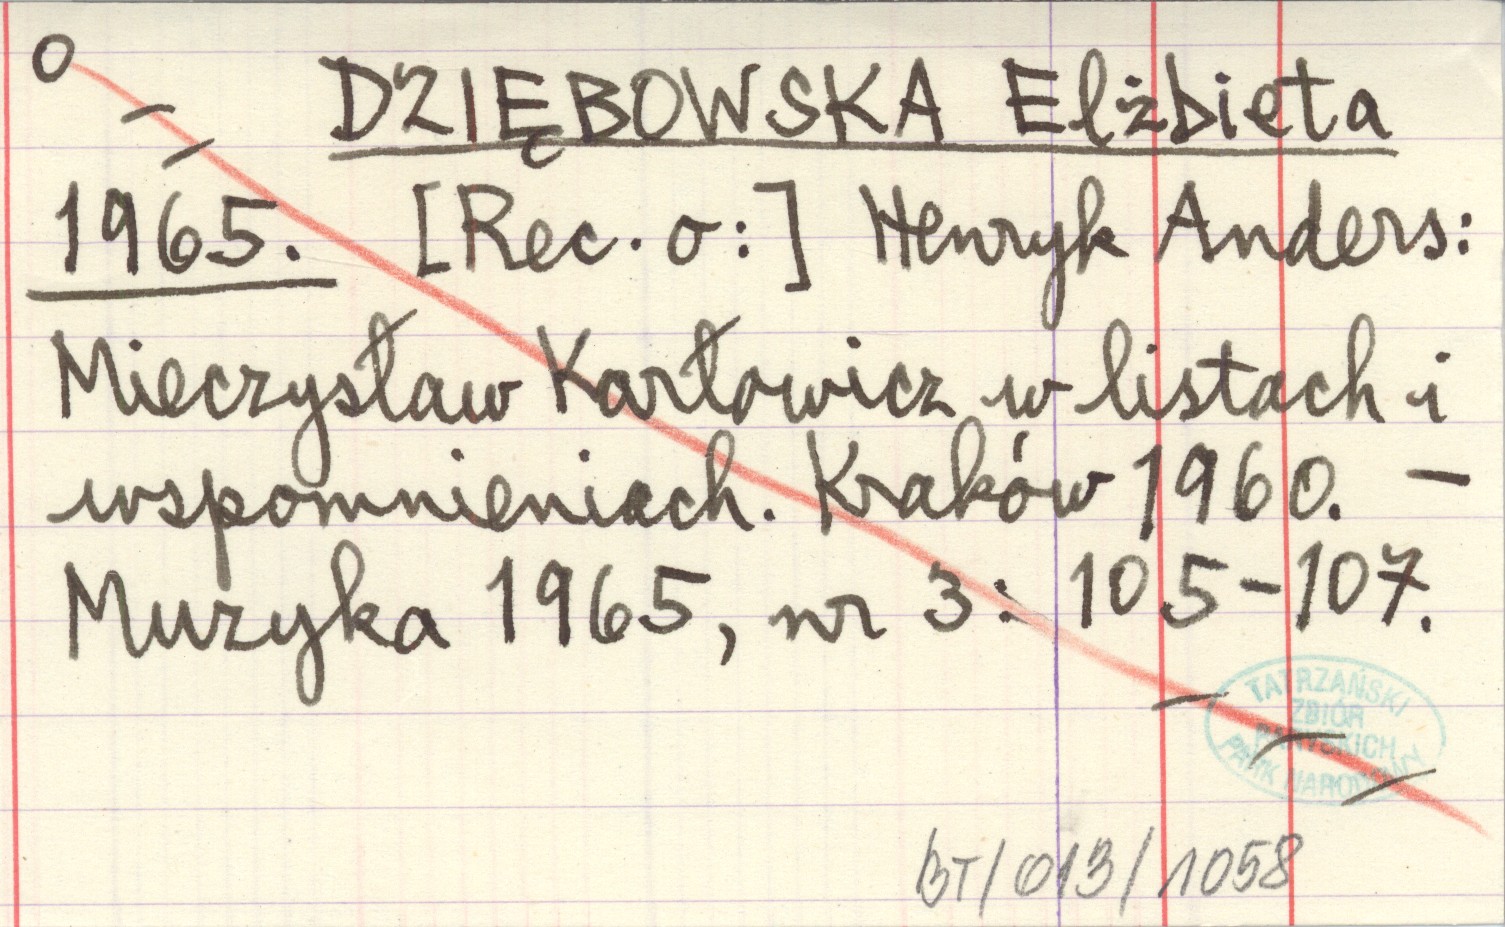 O
DZIĘBOWSKA Elżbieta
1965. [Rec. o:] Henryk Anders:
Mieczysław Karłowicz w listach i
wspomnieniach. Kraków 1960. –
Muzyka 1965, nr 3: 105–107.
TATRZAŃSKI
ZBIÓR
PARYSKICH
PARK NARODOWY
BT/013/1058